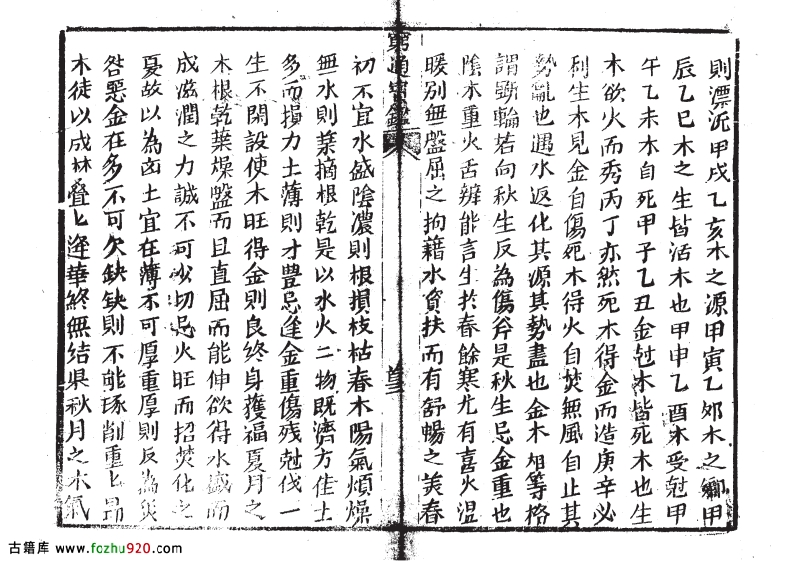 則漂泛甲戌乙亥木之源甲寅乙卯木之鄉甲
辰乙巳木之生皆活木也甲申乙酉木受尅甲
午乙未木自死甲子乙丑金尅木皆死木也生
木欲火而秀丙丁亦然死木得金而造庚辛必
利生木見金自傷死木得火自焚無風自止其
勢亂也遇水返化其源其勢盡也金木相等格
謂斲輪若向秋生反為傷斧是秋生忌金重也
陰木重火舌辨能言生於春餘寒尤有喜火温
暖別無盤屈之拘藉水資扶而有舒暢之美春
窮通寶鑑
初不宜水盛陰濃則根損枝枯春木陽氣煩燥
無水則葉摘根乾是以水火二物既濟方佳土
多而損力土薄則才豊忌逢金重傷残尅伐一
生不閑設使木旺得金則良終身獲福夏月之
木根乾葉燥盤而且直屈而能伸欲得水盛而
成滋潤之力誠不可少切忌火旺而招焚化之
憂故以為凶土宜在薄不可厚重厚則反為災
咎惡金在多不可欠缺缺則不能琢削重匕昂
木徒以成林叠匕逢華終無結果秋月之木氣
古籍库 www.fozhu920.com